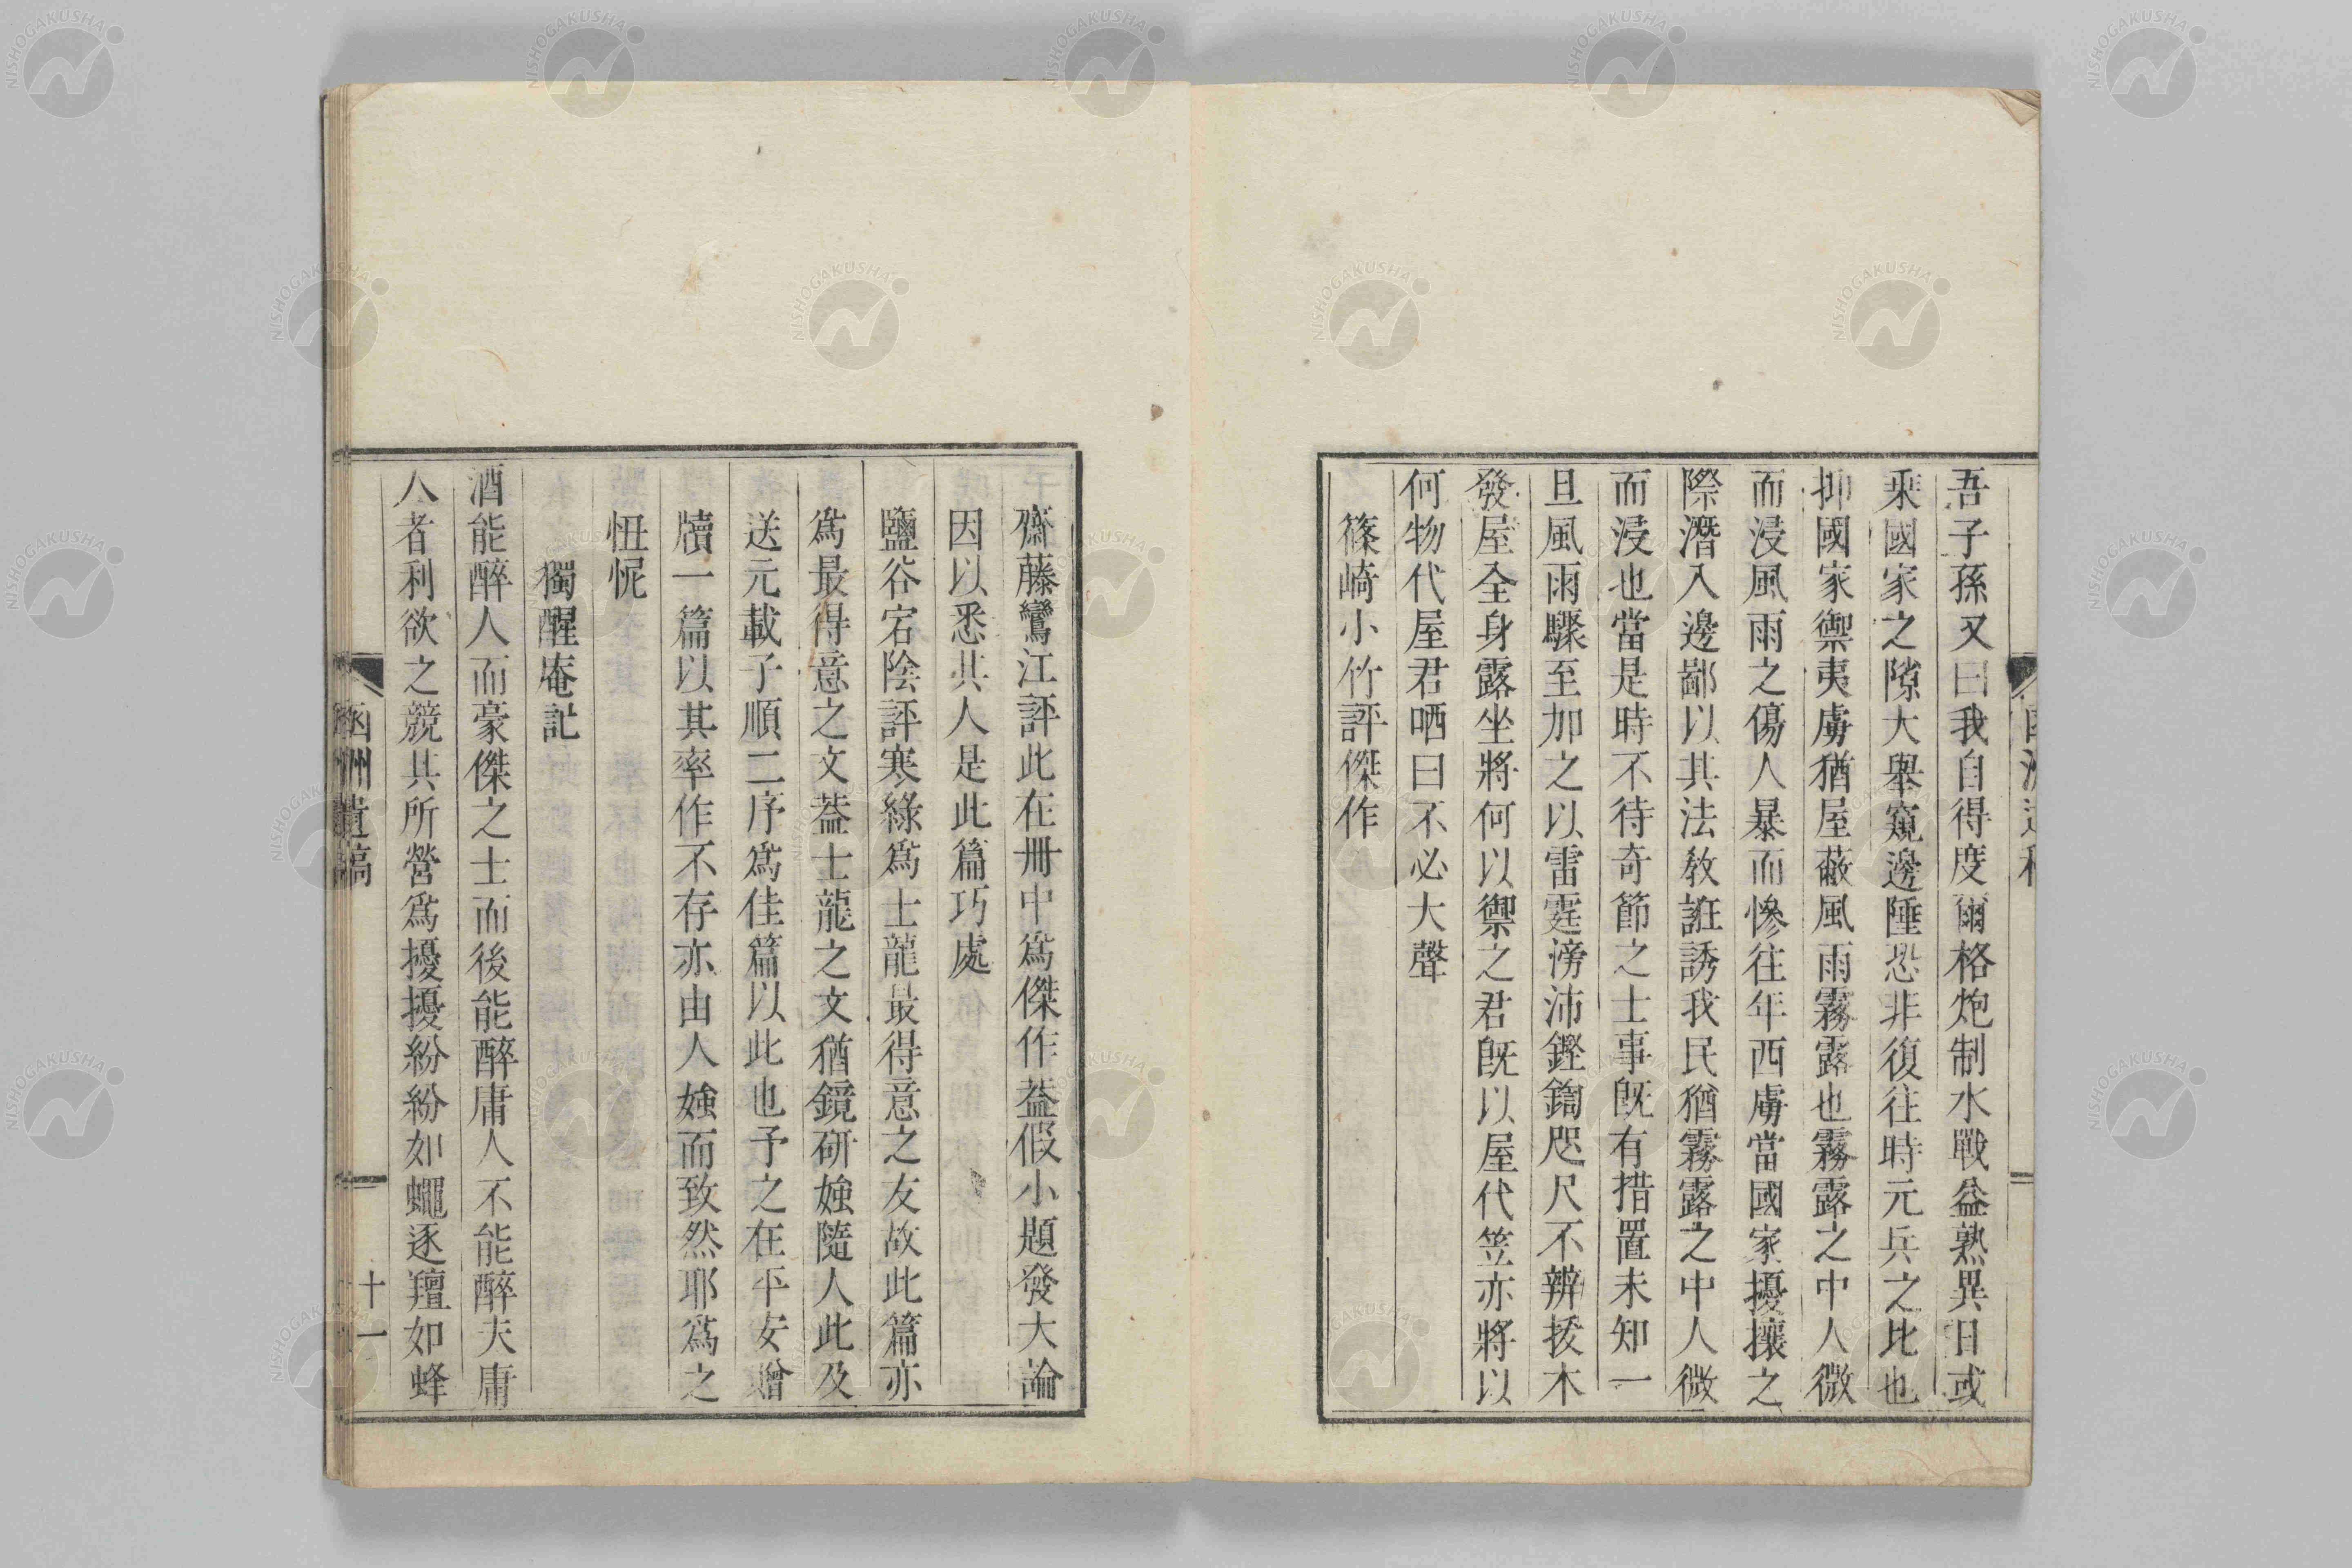 吾子孫又曰我自得度爾格炮制水戰益熟異日或
乘國家之隙大舉窺邊陲恐非復往時元兵之比也
抑國家禦夷虜猶屋蔽風雨霧露也霧露之中人微
而浸風雨之傷人暴而慘往年西虜當國家擾攘之
際潛入邊鄙以其法教誑誘我民猶霧露之中人微
而浸也當是時不待奇節之士事既有措置未知一
旦風雨驟至加之以雷霆滂沛鏗鍧咫尺不辨拔木
發屋全身露坐將何以禦之君既以屋代笠亦將以
何物代屋君哂曰不必大聲
篠崎小竹評傑作
齋藤鸞江評此在冊中爲傑作葢假小題發大論
因以悉其人是此篇巧處
鹽谷宕陰評寒綠爲士龍最得意之友故此篇亦
爲最得意之文葢士龍之文猶鏡硏媸隨人此及
送元載子順二序爲佳篇以此也予之在平安贈
牘一篇以其率作不存亦由人媸而致然耶爲之
忸怩
獨醒庵記
酒能醉人而豪傑之士而後能醉庸人不能醉夫庸
人者利欲之競其所營爲擾擾紛紛如蠅逐羶如蜂
函洲遺稿
十一
NISHOGAKUSHA